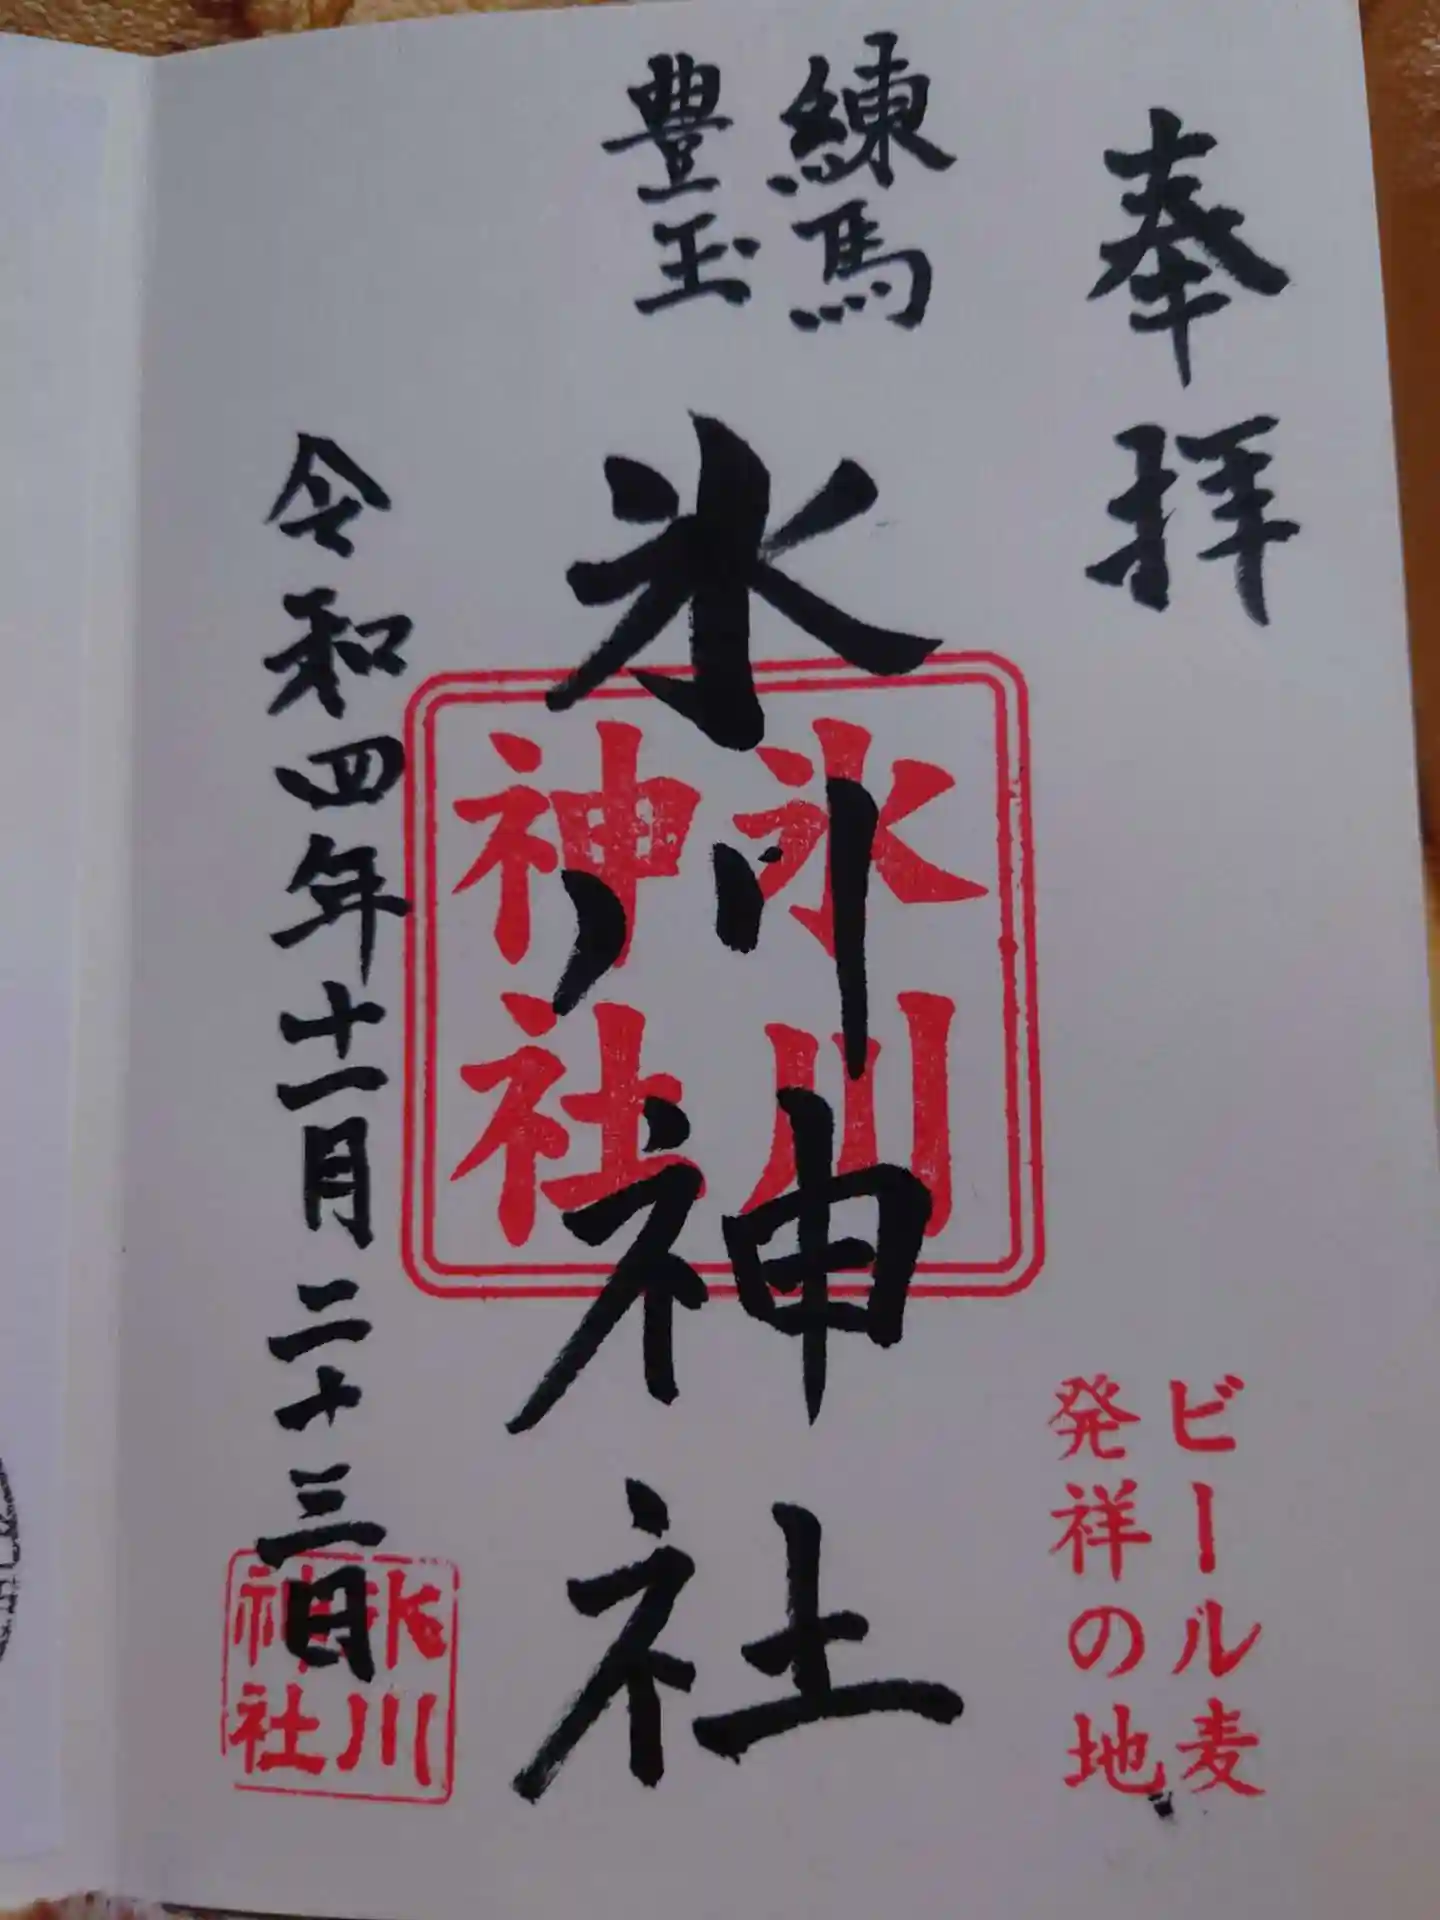 奉拝
ビール麦
発祥の地
練馬
豊玉
氷川神社
氷川
神社
令和四年十一月二十三日
氷川
神社